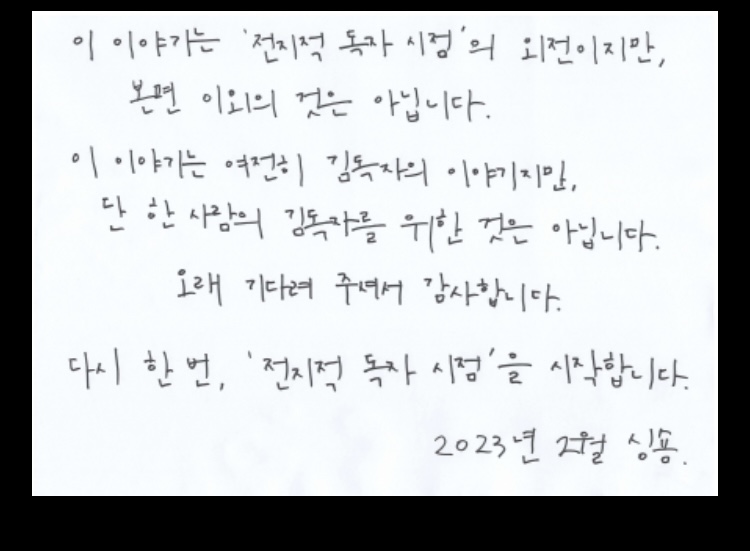 이 이야기는 '전지적 독자 시점'의 외전이지만,
본편 이외의 것은 아닙니다.
이 이야기는 여전히 김독자의 이야기지만,
단 한 사람의 김독자를 위한 것은 아닙니다.
오래 기다려 주셔서 감사합니다.
다시 한 번, '전지적 독자 시점'을 시작합니다.
2023년 2월 싱숑.